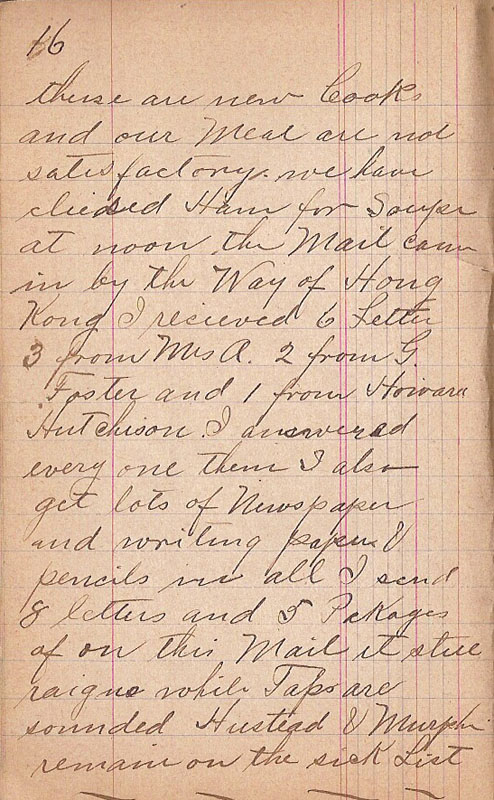 16
these are new Cooks
and our Meal are not
satisfactory. we have
Ham for Souper
at noon the Mail came
in by the Way of Hong
Kong I recieved 6 Letter
3 from Mrs A. 2 from G.
Foster and 1 from Howard
Hutchison. I answered
every one them I also
get lots of Newspaper
and writing paper &
pencils in all I send
8 letters and 5 Pakages
of on this Mail it still
raigns while Taps are
sounded Hustead & Murphy
remain on the sick List